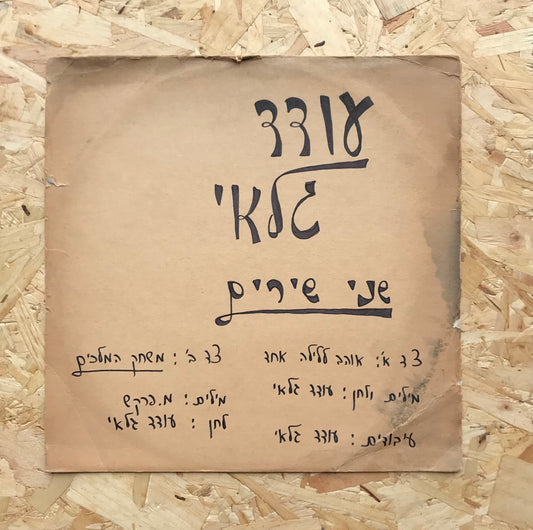 עודד
גלאי
שני שירים
צד א': אוהב ללילה אחד
מילים ולחן: עודד גלאי
עיבודים: עודד גלאי
צד ב': משחק המלכים
מילים: מ. פרקש
לחן: עודד גלאי